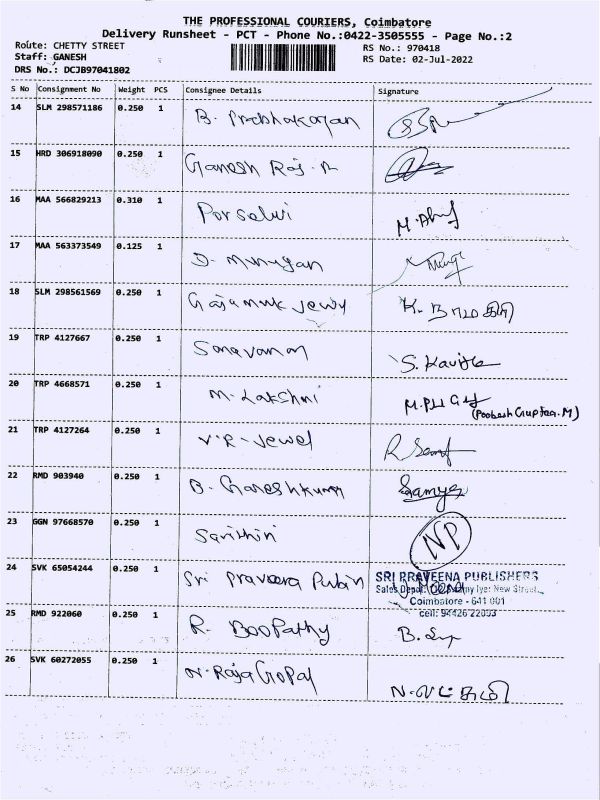 THE PROFESSIONAL COURIERS, Coimbatore
Delivery Runsheet - PCT - Phone No.:0422-3505555 - Page No.:2
Route: CHETTY STREET RS No.: 970418
Staff: GANESH RS Date: 02-Jul-2022
DRS No.: DCJB97041802
S No Consignment No Weight PCS Consignee Details Signature
14 SLM 298571186 0.250 1 B. Prabhakaran
15 HRD 306918090 0.250 1 Ganesh Raj. R
16 MAA 566829213 0.310 1 Porselvi
17 MAA 563373549 0.125 1 D. Murugan
18 SLM 298561569 0.250 1 Gajamuk Jewy K.
19 TRP 4127667 0.250 1 Saravanan S. Kavitha
20 TRP 4668571 0.250 1 M. Lakshmi
(Poobesh Gupthaa.M)
21 TRP 4127264 0.250 1 V.R-Jewel
22 RMD 903940 0.250 1 B. Ganeshkumar
23 GGN 97668570 0.250 1 NP
24 SVK 65054244 0.250 1 Sri Praveena Publin SRI PRAVEENA PUBLISHERS
Sales Depot: Iyer New Street,
Coimbatore - 641 001
Cell: 94426 22093
25 RMD 922060 0.250 1 R. Boopathy
26 SVK 60272055 0.250 1 N. Raja Gopal